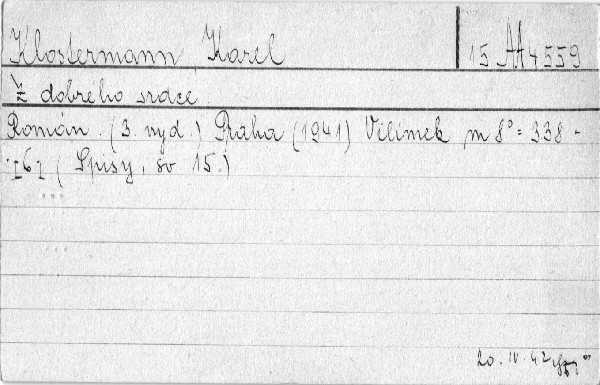 Klostermann, Karel 15 AA 4559
Z dobrého srdce
Román. (3. vyd.) Praha (1941) Vilímek m 8° = 338 -
- I6I ( Spisy, sv 15.)
20. IV. 42